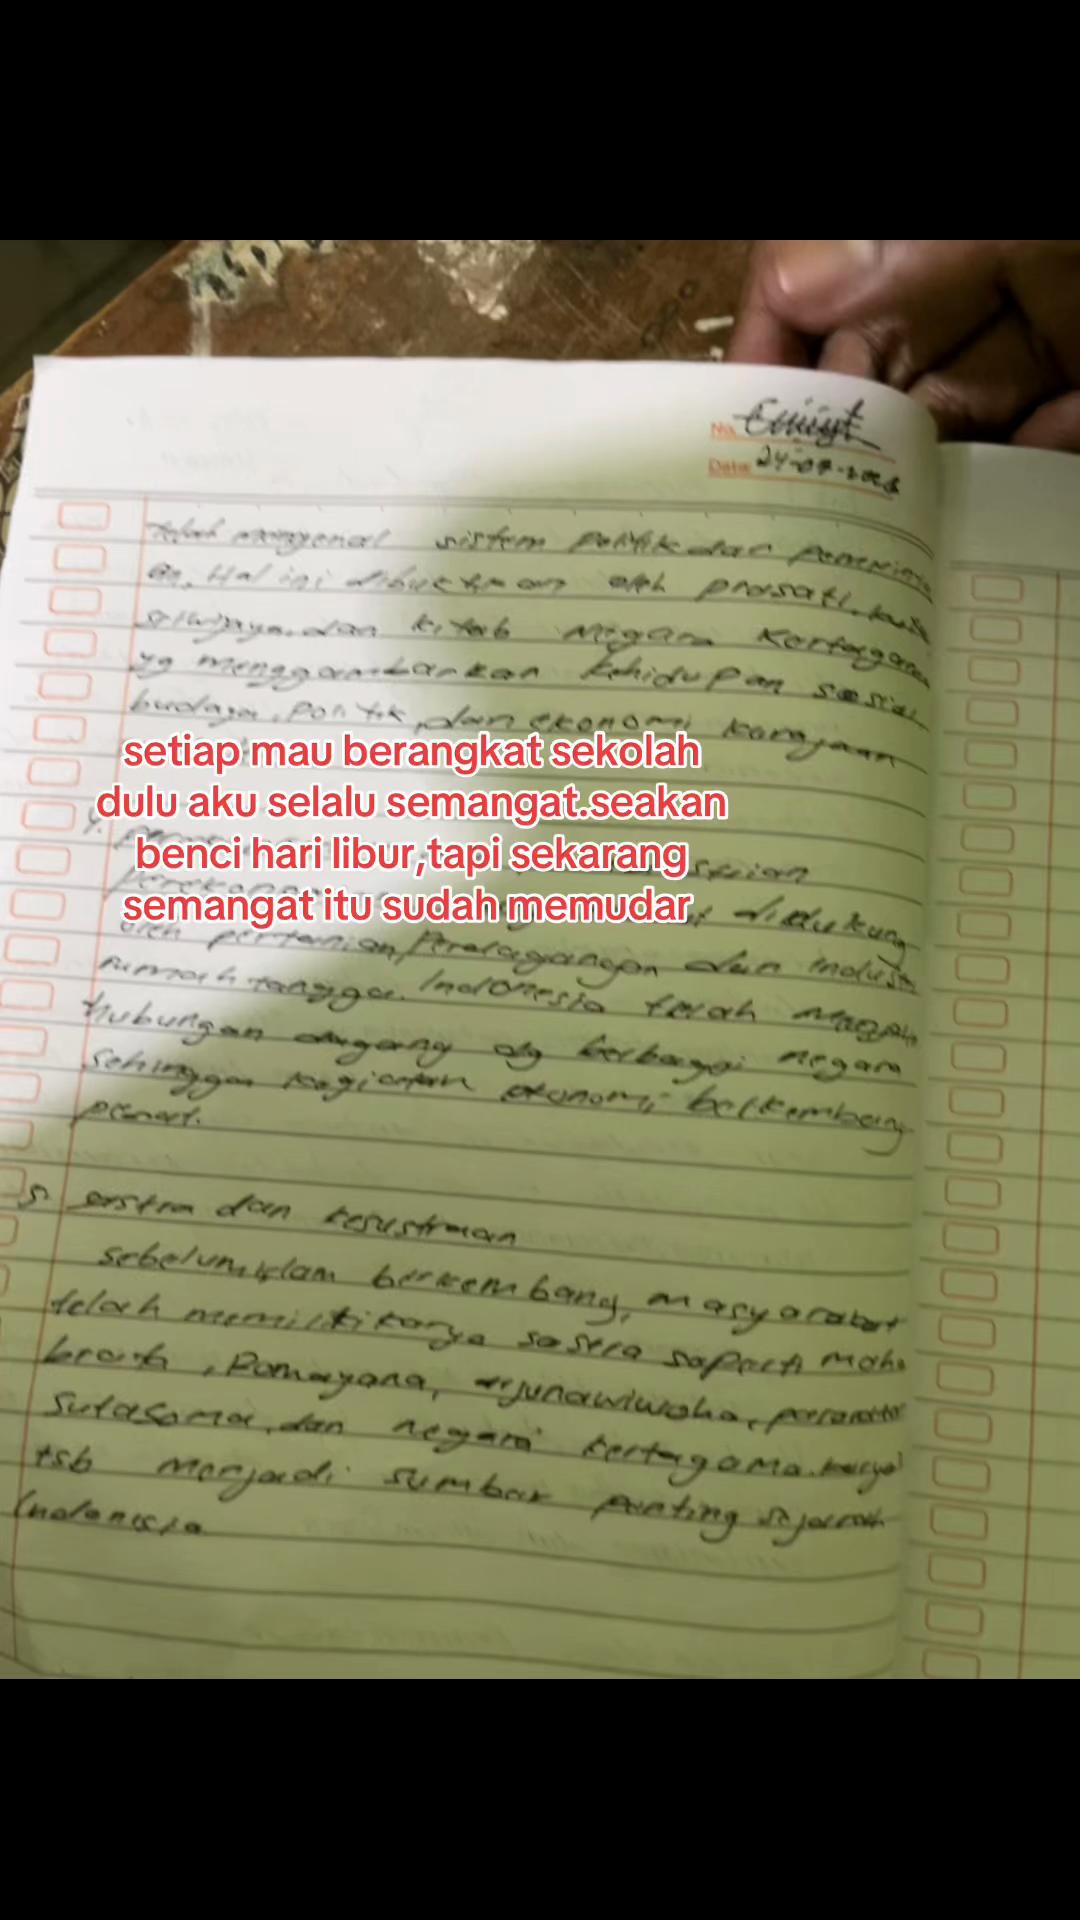 No.
Date: 24-07-
telah mengenal sistem politik dan
Hal ini dibuktikan oleh prasati
dan kitab Negara Kertagama
yg menggambarkan kehidupan sosial
budaya, politik, dan ekonomi kerajaan
setiap mau berangkat sekolah
dulu aku selalu semangat.seakan
benci hari libur,tapi sekarang
semangat itu sudah memudar
4.
didukung
oleh pertanian, Perdagangan dan indust
rumah tangga. Indonesia telah
hubungan dagang dg berbagai negara
sehingga kegiatan ekonomi berkembang
pesat.
5. sastra dan kesustraan
sebelum islam berkembang, masyarakat
telah memiliki karya sastra seperti Maha
brata, Ramayana, arjunawiwaha, pararaton
Sutasoma, dan negara kertagama. karya
tsb menjadi sumber penting sejarah
Indonesia